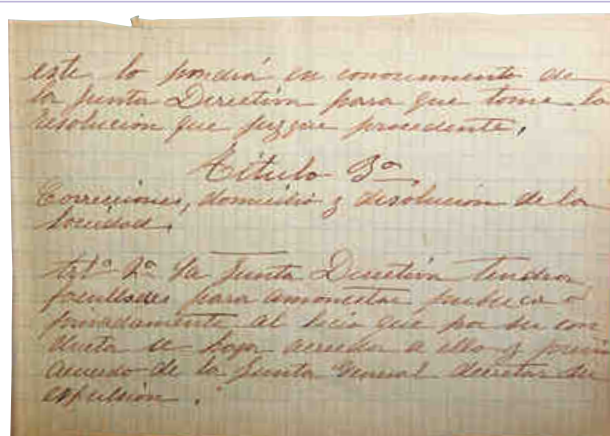 este lo pondrá en conocimiento de
la Junta Directiva para que tome la
resolución que juzgue procedente.
Titulo 3º
Correcciones, domicilio y disolución de la
Sociedad.
Artº 2º La Junta Directiva tendra
facultades para amonestar publica o
privadamente al socio que por su con
ducta se haga acreedor a ello y previo
acuerdo de la Junta General decretar su
expulsión.